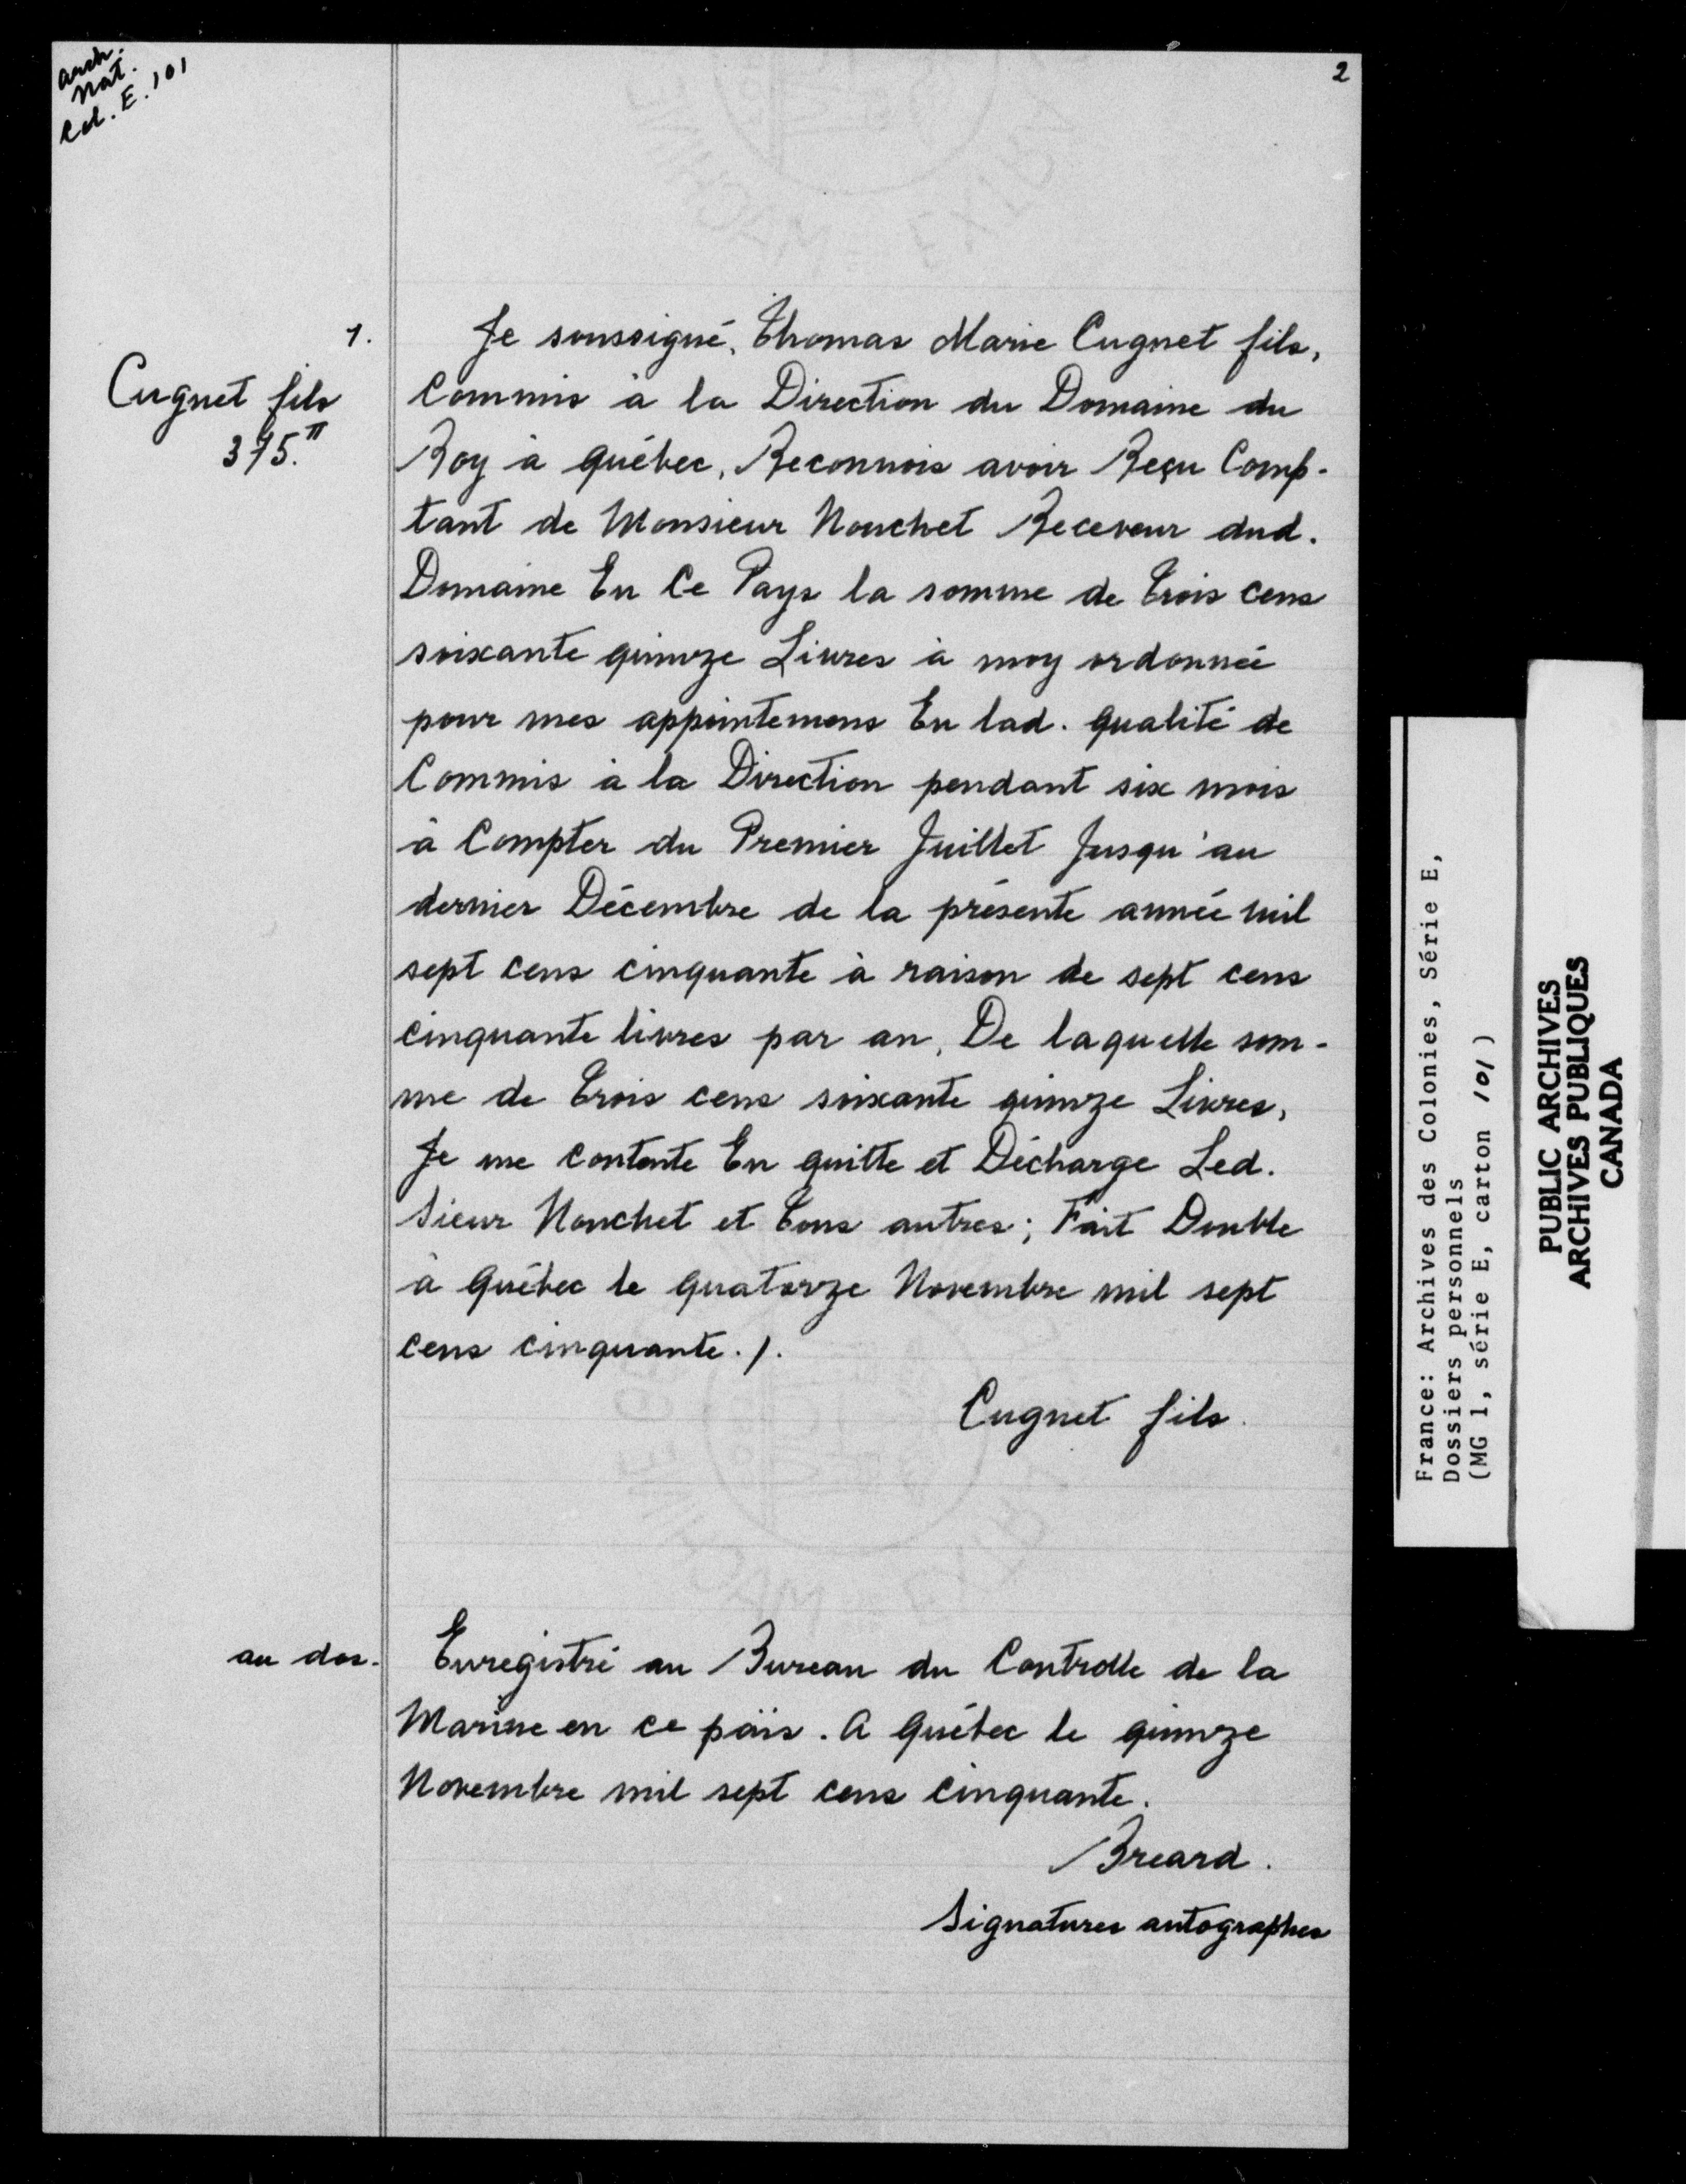 Arch.
Nat.
Col. E. 101
2
1.
Cugnet fils
375.tt
Je soussigné, Thomas Marie Cugnet fils,
Commis à la Direction du Domaine du
Roy à Québec, Reconnois avoir Reçu Comp-
tant de Monsieur Nouchet Receveur dud.
Domaine En Ce Pays la somme de Trois cens
soixante quinze Livres à moy ordonnée
pour mes appointemens En lad. qualité de
Commis à la Direction pendant six mois
à Compter du Premier Juillet Jusqu'au
dernier Décembre de la présente année mil
sept cens cinquante à raison de sept cens
cinquante livres par an, De laquelle som-
me de Trois cens soixante quinze Livres,
Je me contente En quitte et Décharge Led.
Sieur Nouchet et Tous autres; Fait Double
à Québec le quatorze Novembre mil sept
cens cinquante./.
Cugnet fils.
au dos.
Enregistré au Bureau du Controlle de la
Marine en ce païs. A Québec le quinze
Novembre mil sept cens cinquante.
Breard.
Signatures autographes
France: Archives des Colonies, Série E,
Dossiers personnels
(MG 1, série E, carton 101)
PUBLIC ARCHIVES
ARCHIVES PUBLIQUES
CANADA